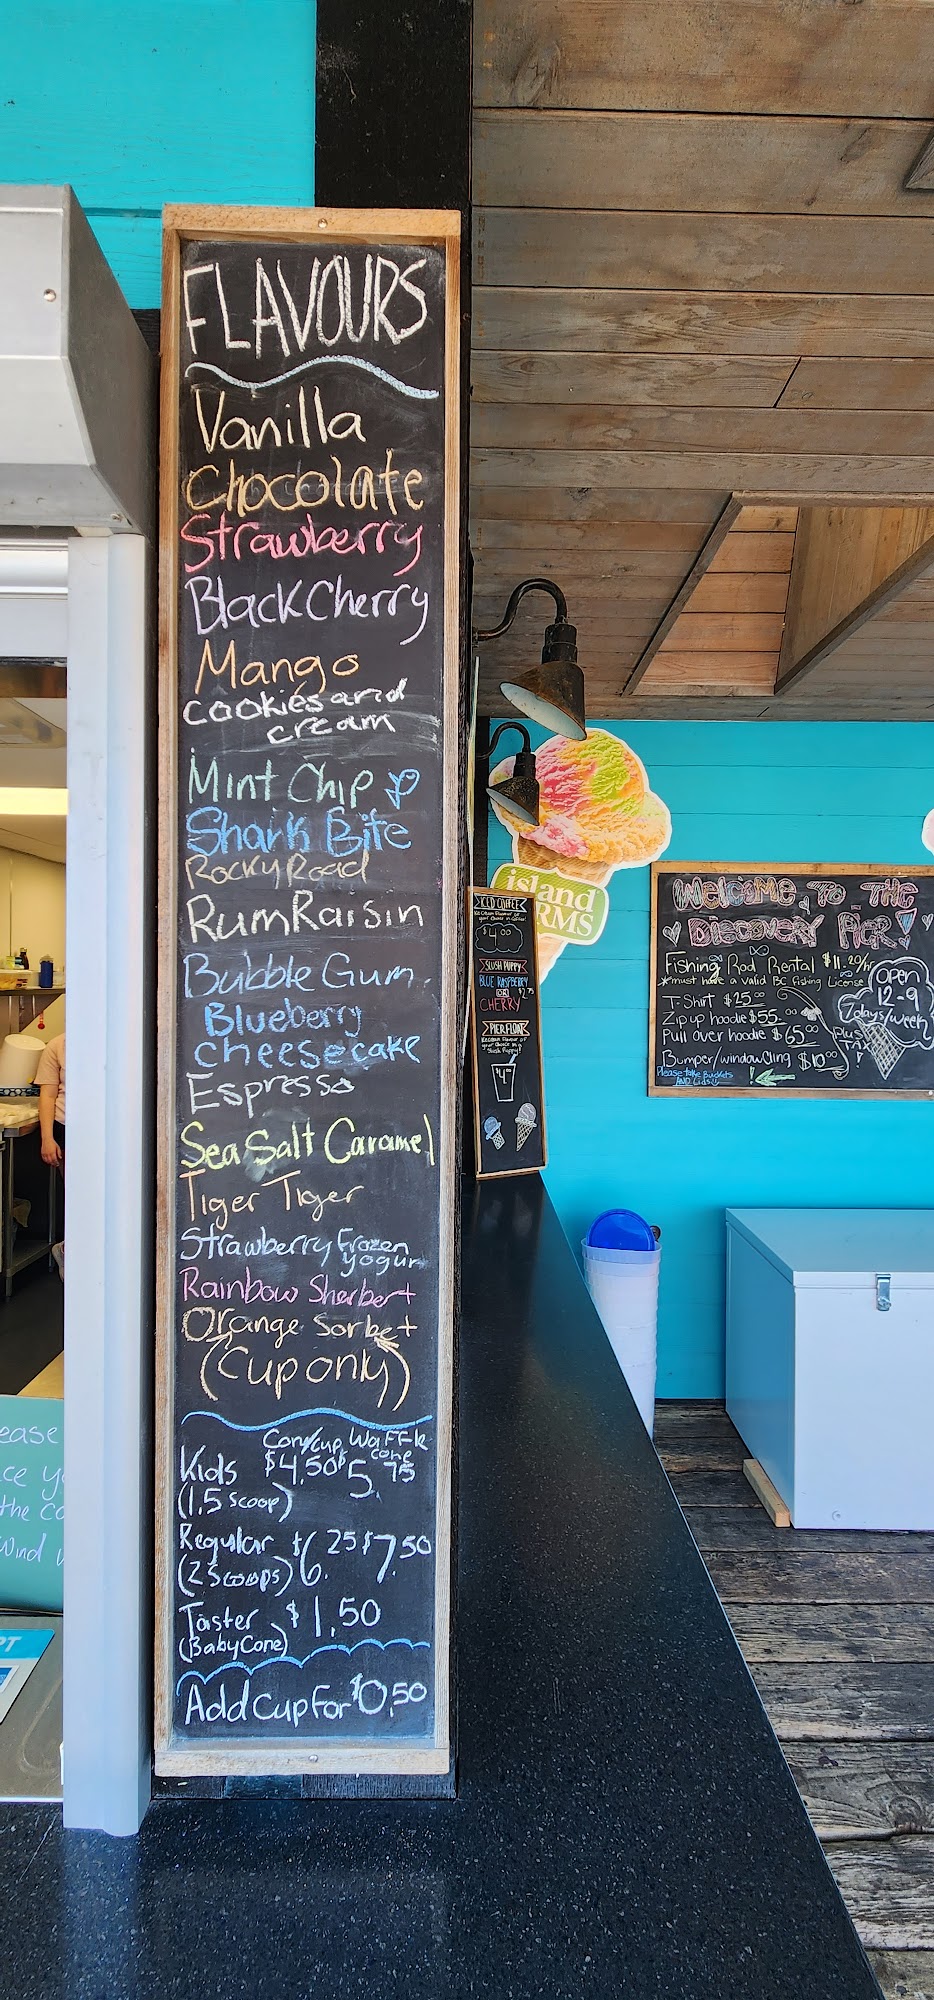 FLAVOURS
Vanilla
Chocolate
Strawberry
Black Cherry
Mango
cookies and
cream
Mint Chip
Shark Bite
Rocky Road
Rum Raisin
Bubble Gum
Blueberry
cheesecake
Espresso
Sea Salt Caramel
Tiger Tiger
Strawberry Frozen
yogurt
Rainbow Sherbert
Orange Sorbet
(Cup only)
Cone/cup Waffle
cone
Kids $4.50 $5.75
(1.5 scoop)
Regular $6.25 $7.50
(2 Scoops)
Taster $1.50
(Baby Cone)
Add Cup For $0.50
island
RMS
ICED COFFEE
Ice Cream Flavour of
your choice in Coffee!
$4.00
SLUSH PUPPY
BLUE RASPBERRY
OR $2.75
CHERRY
PIER FLOAT
Ice Cream Flavour of
your choice in a
Slush Puppy!
$4
Welcome To The
Discovery Pier!
Fishing Rod Rental $11.20/hr
*must have a valid BC fishing License
T-Shirt $25.00
Zip up hoodie $55.00
Pull over hoodie $65.00
Plus
TAX!
Bumper/window Cling $10.00
Please take Buckets
AND Lids
Open
12-9
7days/week
ease
ce y
the co
wind
PT